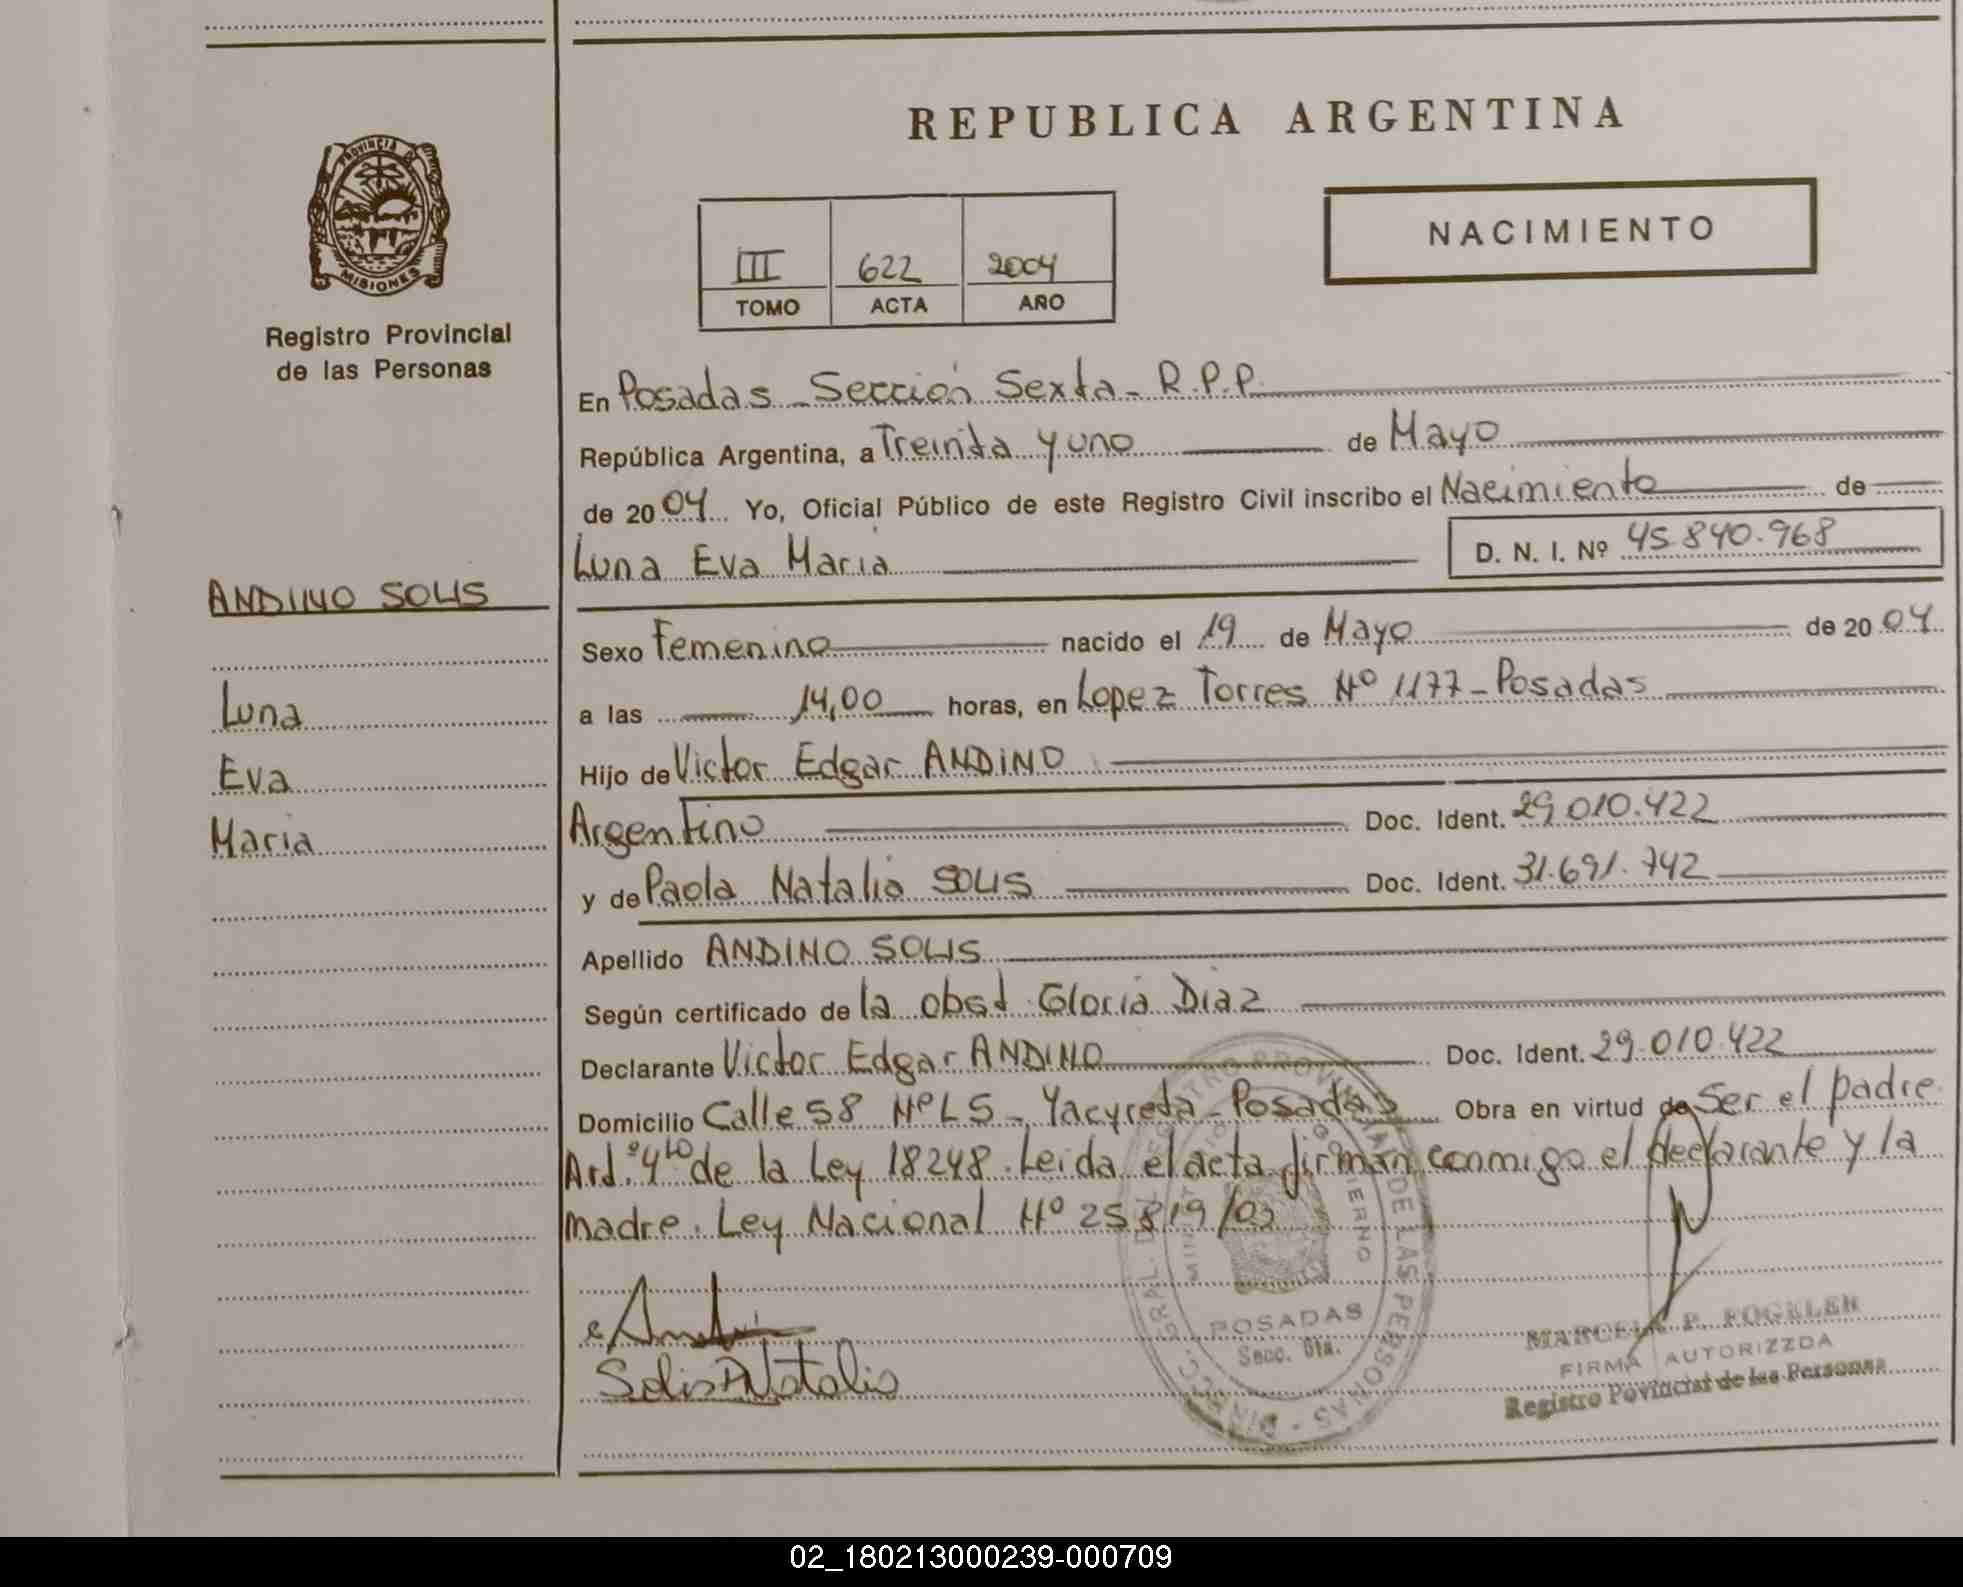 REPUBLICA ARGENTINA
PROVINCIA DE
MISIONES
Registro Provincial
de las Personas
III 622 2004
TOMO ACTA AÑO
NACIMIENTO
En Posadas - Sección Sexta - R.P.P.
República Argentina, a Treinta y uno de Mayo
de 2004 Yo, Oficial Público de este Registro Civil inscribo el Nacimiento de
Luna Eva Maria D. N. I. Nº 45.840.968
ANDINO SOLIS
Luna
Eva
Maria
Sexo Femenino nacido el 19 de Mayo de 2004
a las 14,00 horas, en Lopez Torres Nº 1177 - Posadas
Hijo de Victor Edgar ANDINO
Argentino Doc. Ident. 29.010.422
y de Paola Natalia SOLIS Doc. Ident. 31.691.742
Apellido ANDINO SOLIS
Según certificado de la obst. Gloria Diaz
Declarante Victor Edgar ANDINO Doc. Ident. 29.010.422
Domicilio Calle 58 Nº L5 - Yacyreta - Posadas Obra en virtud de Ser el padre
Art. 4to de la Ley 18248. Leida el acta firman conmigo el declarante y la
madre. Ley Nacional Nº 25819/03
Solis Natalia
POSADAS
Secc. 6ta.
MARCELA P. FOGELER
FIRMA AUTORIZZDA
Registro Povincial de las Personas
02_180213000239-000709